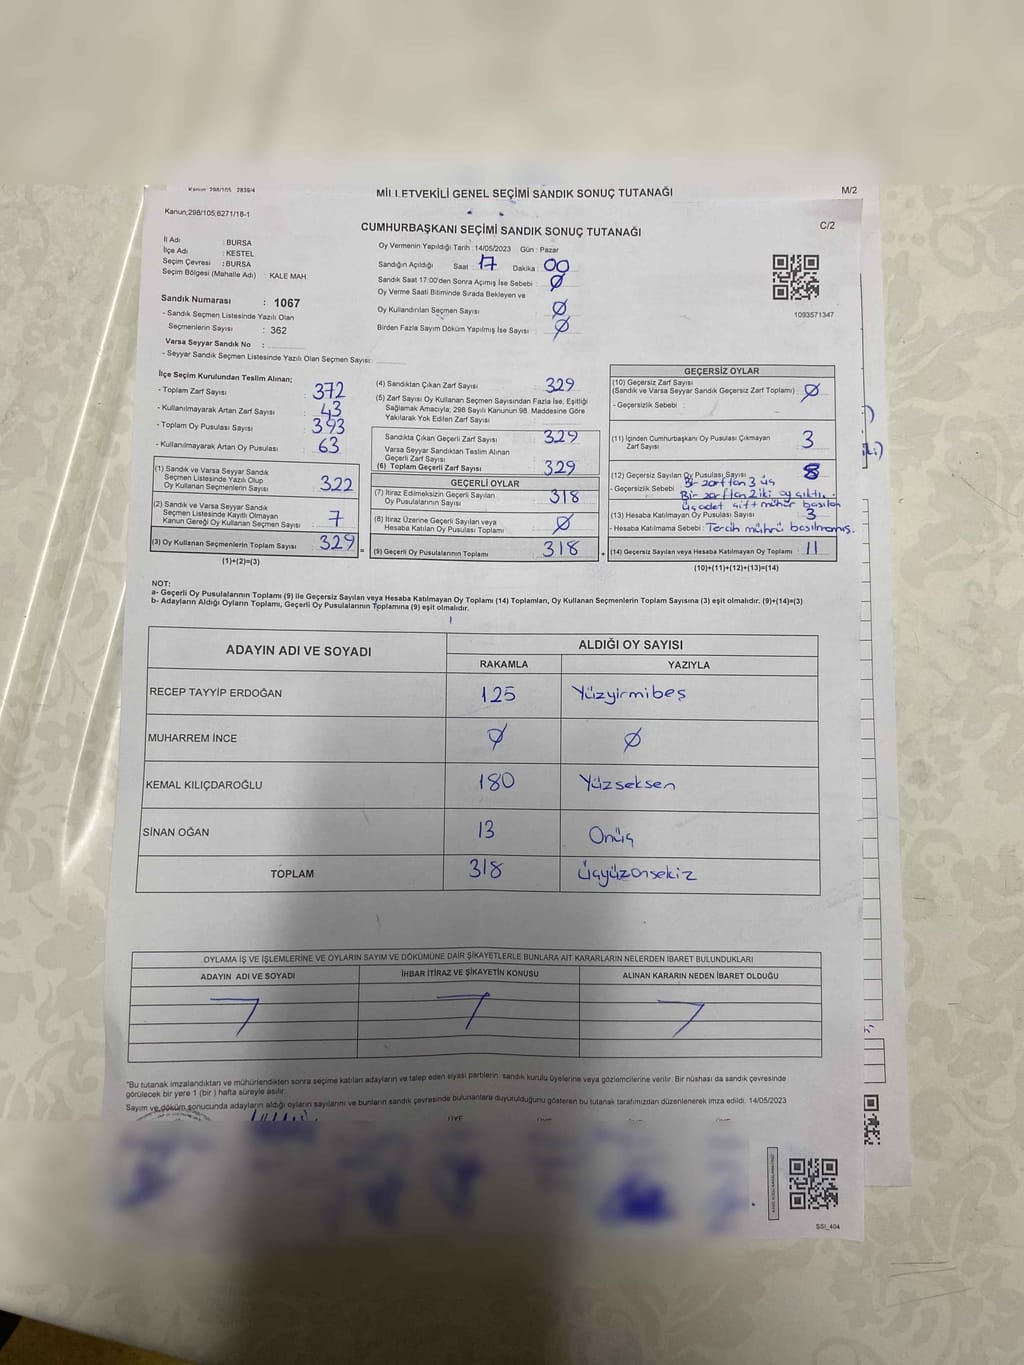 MİLLETVEKİLİ GENEL SEÇİMİ SANDIK SONUÇ TUTANAĞI
M/2
Kanun;298/105,6271/18-1
CUMHURBAŞKANI SEÇİMİ SANDIK SONUÇ TUTANAĞI
C/2
İl Adı : BURSA
İlçe Adı : KESTEL
Seçim Çevresi : BURSA
Seçim Bölgesi (Mahalle Adı) : KALE MAH.
Sandık Numarası : 1067
- Sandık Seçmen Listesinde Yazılı Olan
Seçmenlerin Sayısı : 362
Varsa Seyyar Sandık No :
- Seyyar Sandık Seçmen Listesinde Yazılı Olan Seçmen Sayısı:
Oy Vermenin Yapıldığı Tarih : 14/05/2023 Gün : Pazar
Sandığın Açıldığı Saat : 17 Dakika : 00
Sandık Saat 17:00'den Sonra Açımış İse Sebebi : Ø
Oy Verme Saati Bitiminde Sırada Bekleyen ve
Oy Kullandırılan Seçmen Sayısı : Ø
Birden Fazla Sayım Döküm Yapılmış İse Sayısı : Ø
1093571347
İlçe Seçim Kurulundan Teslim Alınan;
- Toplam Zarf Sayısı : 372
- Kullanılmayarak Artan Zarf Sayısı : 43
- Toplam Oy Pusulası Sayısı : 393
- Kullanılmayarak Artan Oy Pusulası : 63
(1) Sandık ve Varsa Seyyar Sandık
Seçmen Listesinde Yazılı Olup
Oy Kullanan Seçmenlerin Sayısı 322
(2) Sandık ve Varsa Seyyar Sandık
Seçmen Listesinde Kayıtlı Olmayan
Kanun Gereği Oy Kullanan Seçmen Sayısı 7
(3) Oy Kullanan Seçmenlerin Toplam Sayısı 329
(1)+(2)=(3)
(4) Sandıktan Çıkan Zarf Sayısı : 329
(5) Zarf Sayısı Oy Kullanan Seçmen Sayısından Fazla İse, Eşitliği
Sağlamak Amacıyla; 298 Sayılı Kanunun 98. Maddesine Göre
Yakılarak Yok Edilen Zarf Sayısı :
Sandıkta Çıkan Geçerli Zarf Sayısı 329
Varsa Seyyar Sandıktan Teslim Alınan
Geçerli Zarf Sayısı
(6) Toplam Geçerli Zarf Sayısı 329
GEÇERLİ OYLAR
(7) İtiraz Edilmeksizin Geçerli Sayılan
Oy Pusulalarının Sayısı 318
(8) İtiraz Üzerine Geçerli Sayılan veya
Hesaba Katılan Oy Pusulası Toplamı Ø
(9) Geçerli Oy Pusulalarının Toplamı 318
GEÇERSİZ OYLAR
(10) Geçersiz Zarf Sayısı
(Sandık ve Varsa Seyyar Sandık Geçersiz Zarf Toplamı) : Ø
- Geçersizlik Sebebi :
(11) İçinden Cumhurbaşkanı Oy Pusulası Çıkmayan
Zarf Sayısı : 3
(12) Geçersiz Sayılan Oy Pusulası Sayısı :
- Geçersizlik Sebebi : Bir zarftan 3 üç
Bir zarftan 2 iki oy çıktı.
Üç adet çift mühür basılan
(13) Hesaba Katılmayan Oy Pusulası Sayısı : 3
- Hesaba Katılmama Sebebi : Tercih mührü basılmamış.
(14) Geçersiz Sayılan veya Hesaba Katılmayan Oy Toplamı 11
(10)+(11)+(12)+(13)=(14)
NOT:
a- Geçerli Oy Pusulalarının Toplamı (9) ile Geçersiz Sayılan veya Hesaba Katılmayan Oy Toplamı (14) Toplamları, Oy Kullanan Seçmenlerin Toplam Sayısına (3) eşit olmalıdır. (9)+(14)=(3)
b- Adayların Aldığı Oyların Toplamı, Geçerli Oy Pusulalarının Toplamına (9) eşit olmalıdır.
ADAYIN ADI VE SOYADI
ALDIĞI OY SAYISI
RAKAMLA YAZIYLA
RECEP TAYYİP ERDOĞAN 125 Yüzyirmibeş
MUHARREM İNCE Ø Ø
KEMAL KILIÇDAROĞLU 180 Yüzseksen
SİNAN OĞAN 13 Onüç
TOPLAM 318 Üçyüzonsekiz
OYLAMA İŞ VE İŞLEMLERİNE VE OYLARIN SAYIM VE DÖKÜMÜNE DAİR ŞİKAYETLERLE BUNLARA AİT KARARLARIN NELERDEN İBARET BULUNDUKLARI
ADAYIN ADI VE SOYADI İHBAR İTİRAZ VE ŞİKAYETİN KONUSU ALINAN KARARIN NEDEN İBARET OLDUĞU
"Bu tutanak imzalandıktan ve mühürlendikten sonra seçime katılan adayların ve talep eden siyasi partilerin sandık kurulu üyelerine veya gözlemcilerine verilir. Bir nüshası da sandık çevresinde
görülecek bir yere 1 (bir) hafta süreyle asılır.
Sayım ve döküm sonucunda adayların aldığı oyların sayılarını ve bunların sandık çevresinde bulunanlara duyurulduğunu gösteren bu tutanak tarafımızdan düzenlenerek imza edildi. 14/05/2023
SSI_404